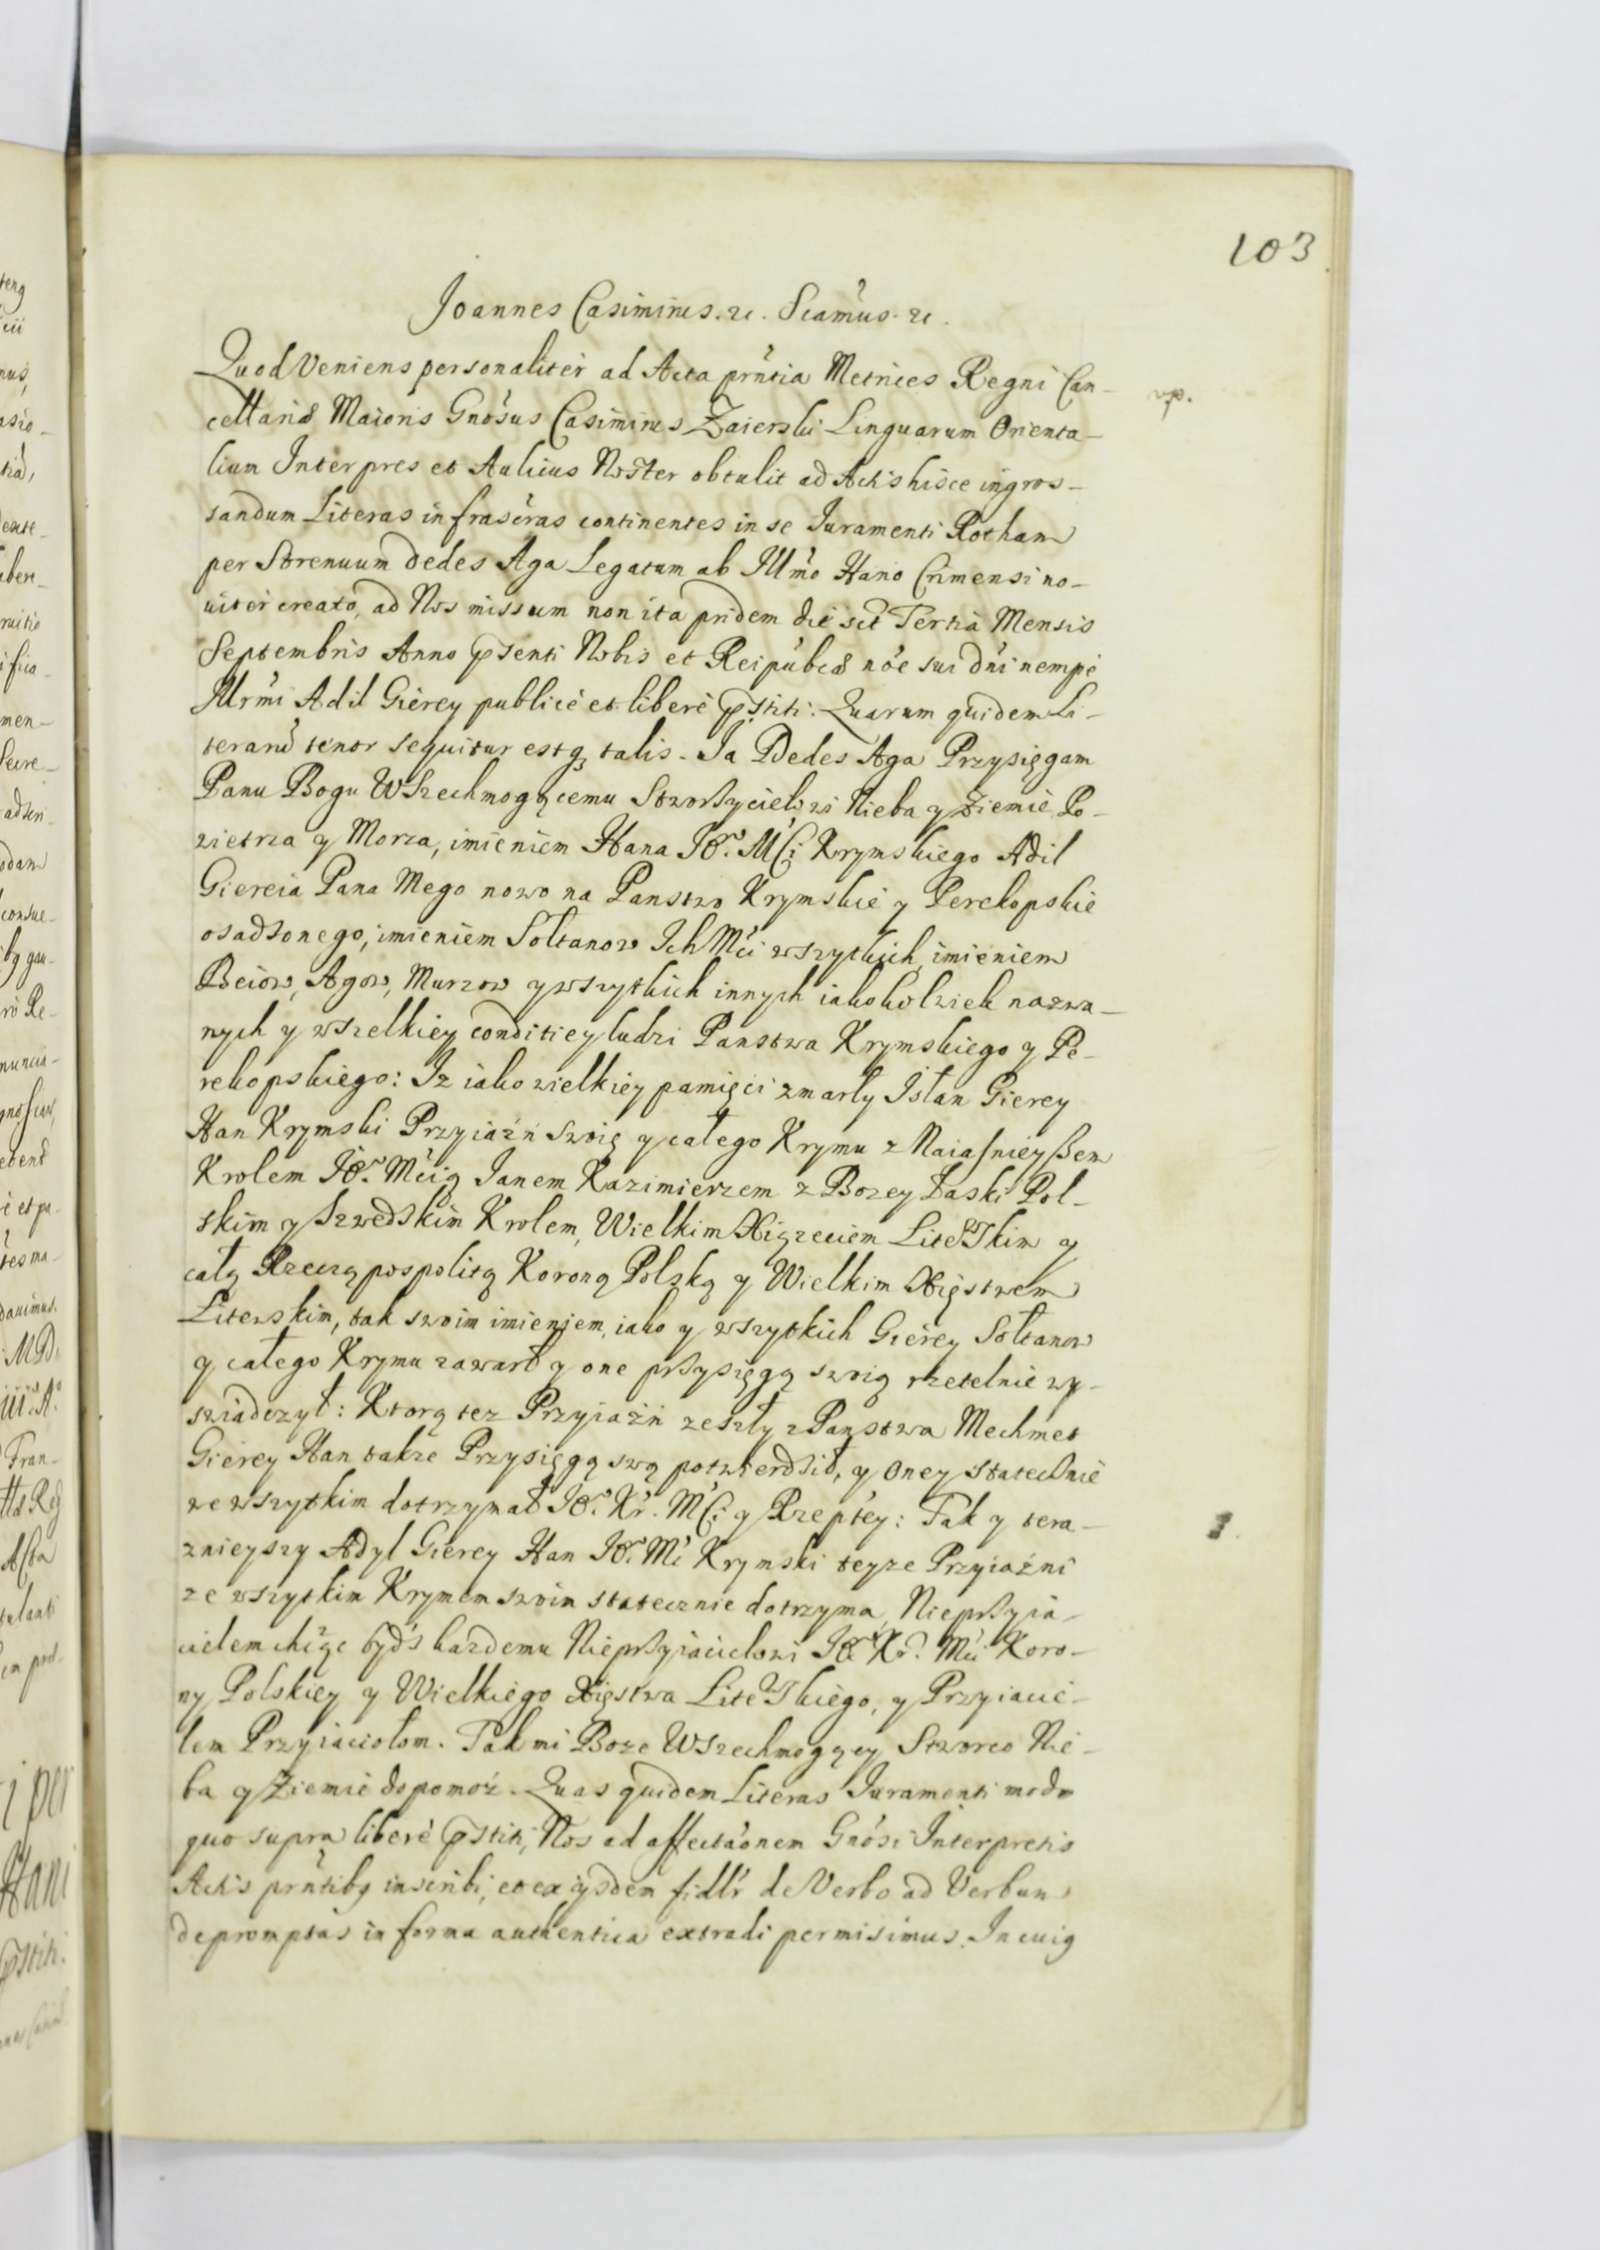 103
Joannes Casimirus. rc. Seamus. rc.
Quod Veniens personaliter ad Acta prntia Metrices Regni Can-
vp.
cellariæ Maioris Gnosus Casimirus Zaierski Linguarum Orienta-
lium Interpres et Aulicus Noster obtulit ad Actis hisce ingros-
sandum Literas infrascras continentes in se Juramenti Rotham
per Strenuum Dedes Aga Legatum ab Illmo Hano Crimensi no-
uiter creato, ad Nos missum non ita pridem die sct Tertia Mensis
Septembris Anno pstenti Nobis et Reipubcæ noe sui dni nempe
Illrmi Adil Gierey publice et libere pstiti: Quarum quidem Li-
terarũ tenor sequitur estq talis. Ja Dedes Aga Przysięgam
Panu Bogu Wszechmogącemu Stworzycielowi Nieba y Ziemie Po-
wietrza y Morza, imieniem Hana Jo. MCi Krymskiego Adil
Giereia Pana Mego nowo na Panstwo Krymskie y Perekopskie
osadzonego, imieniem Sołtanow Ich Mci wszytkich, imieniem
Beiow, Agow, Murzow y wszytkich innych iakokolwiek nazwa-
nych y wszelkiey conditiey ludzi Panstwa Krymskiego y Pe-
rekopskiego: Iz iako wielkiey pamięci zmarły Isłan Gierey
Han Krymski Przyiaźń swoię y całego Krymu z Naiaśnieyszem
Krolem Jo. Mcią Janem Kazimierzem z Bozey Łaski Pol-
skim y Szwedskim Krolem, Wielkim Xiązeciem Litewskim y
całą Rzecząpospolitą Koroną Polską y Wielkim Xięstwem
Litewskim, tak swoim imieniem, iako y wszytkich Gierey Sołtanow
y całego Krymu zawarł y one przysięgą swoią rzetelnie wy-
swiadczył: Ktorą tez Przyiaźń zeszły z Panstwa Mechmet
Gierey Han takze Przysięgą swą potwierdził, y oney statecznie
we wszytkim dotrzymał Jo. Kr. MCi y Rzeptey: Tak y tera-
znieyszy Adyl Gierey Han Jo. Mc Krymski teyze Przyiaźni
ze wszytkim Krymem swoim statecznie dotrzyma, Nieprzyia-
cielem chcąc bydź kazdemu Nieprzyiacielowi Jo Kr. Mci Koro-
ny Polskiey y Wielkiego Xięstwa Litewskiego, y Przyiacie-
lem Przyiaciołom. Tak mi Boze Wszechmogący Stworco Nie-
ba y Ziemie dopomoź. Quas quidem Literas Juramenti modo
quo supra libere pstiti, Nos ad affectaonem Gnosi Interpretis
Actis prntibq inscribi, et ex ijsdem fidlr de Verbo ad Verbum
depromptas in forma authentica extradi permisimus. In cuiq